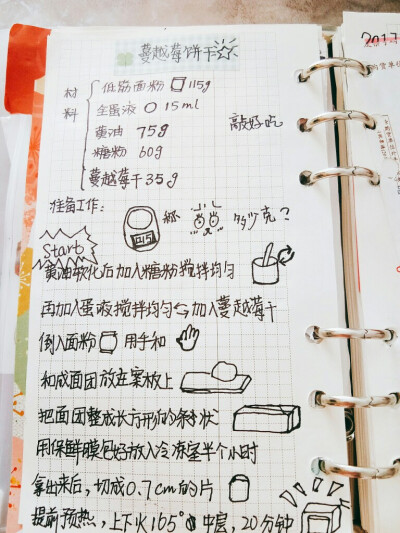 蔓越莓饼干
2017
材料
低筋面粉 115g
全蛋液 15ml
黄油 75g
糖粉 60g
蔓越莓干35g
敲好吃
准备工作:
称 多少克?
Start
黄油软化后加入糖粉搅拌均匀
再加入蛋液搅拌均匀 加入蔓越莓干
倒入面粉 用手和
和成面团放在案板上
把面团整成长方形的条状
用保鲜膜包好放入冷冻室半个小时
拿出来后,切成0.7cm的片
提前预热,上下火165° 中层,20分钟